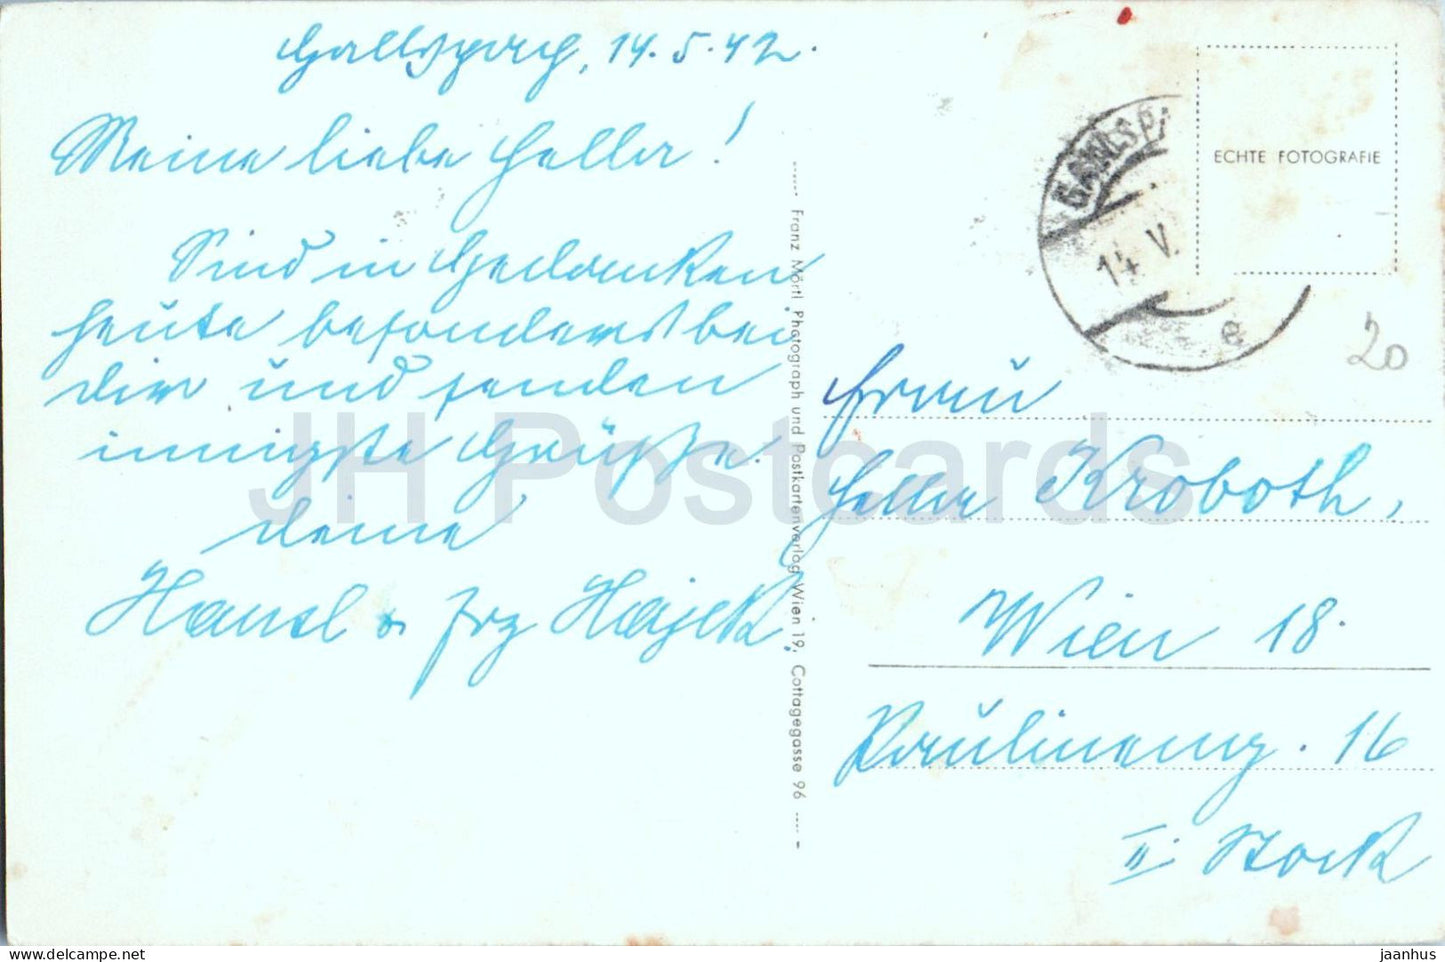 Gallspach, 14.5.42.
Meine liebe Heller!
Sind in Gedanken
heute besonders bei
dir und senden
innigste Grüße.
deine
Hansl & Hajek.
Franz Mörtl Photograph und Postkartenverlag Wien 19, Cottagegasse 96
GALLSP
14. V.
e
ECHTE FOTOGRAFIE
20
Frau
Heller Kroboth,
Wien 18.
Paulineng. 16
II. Stock
JH Postcards
delcampe.net
jaanhus